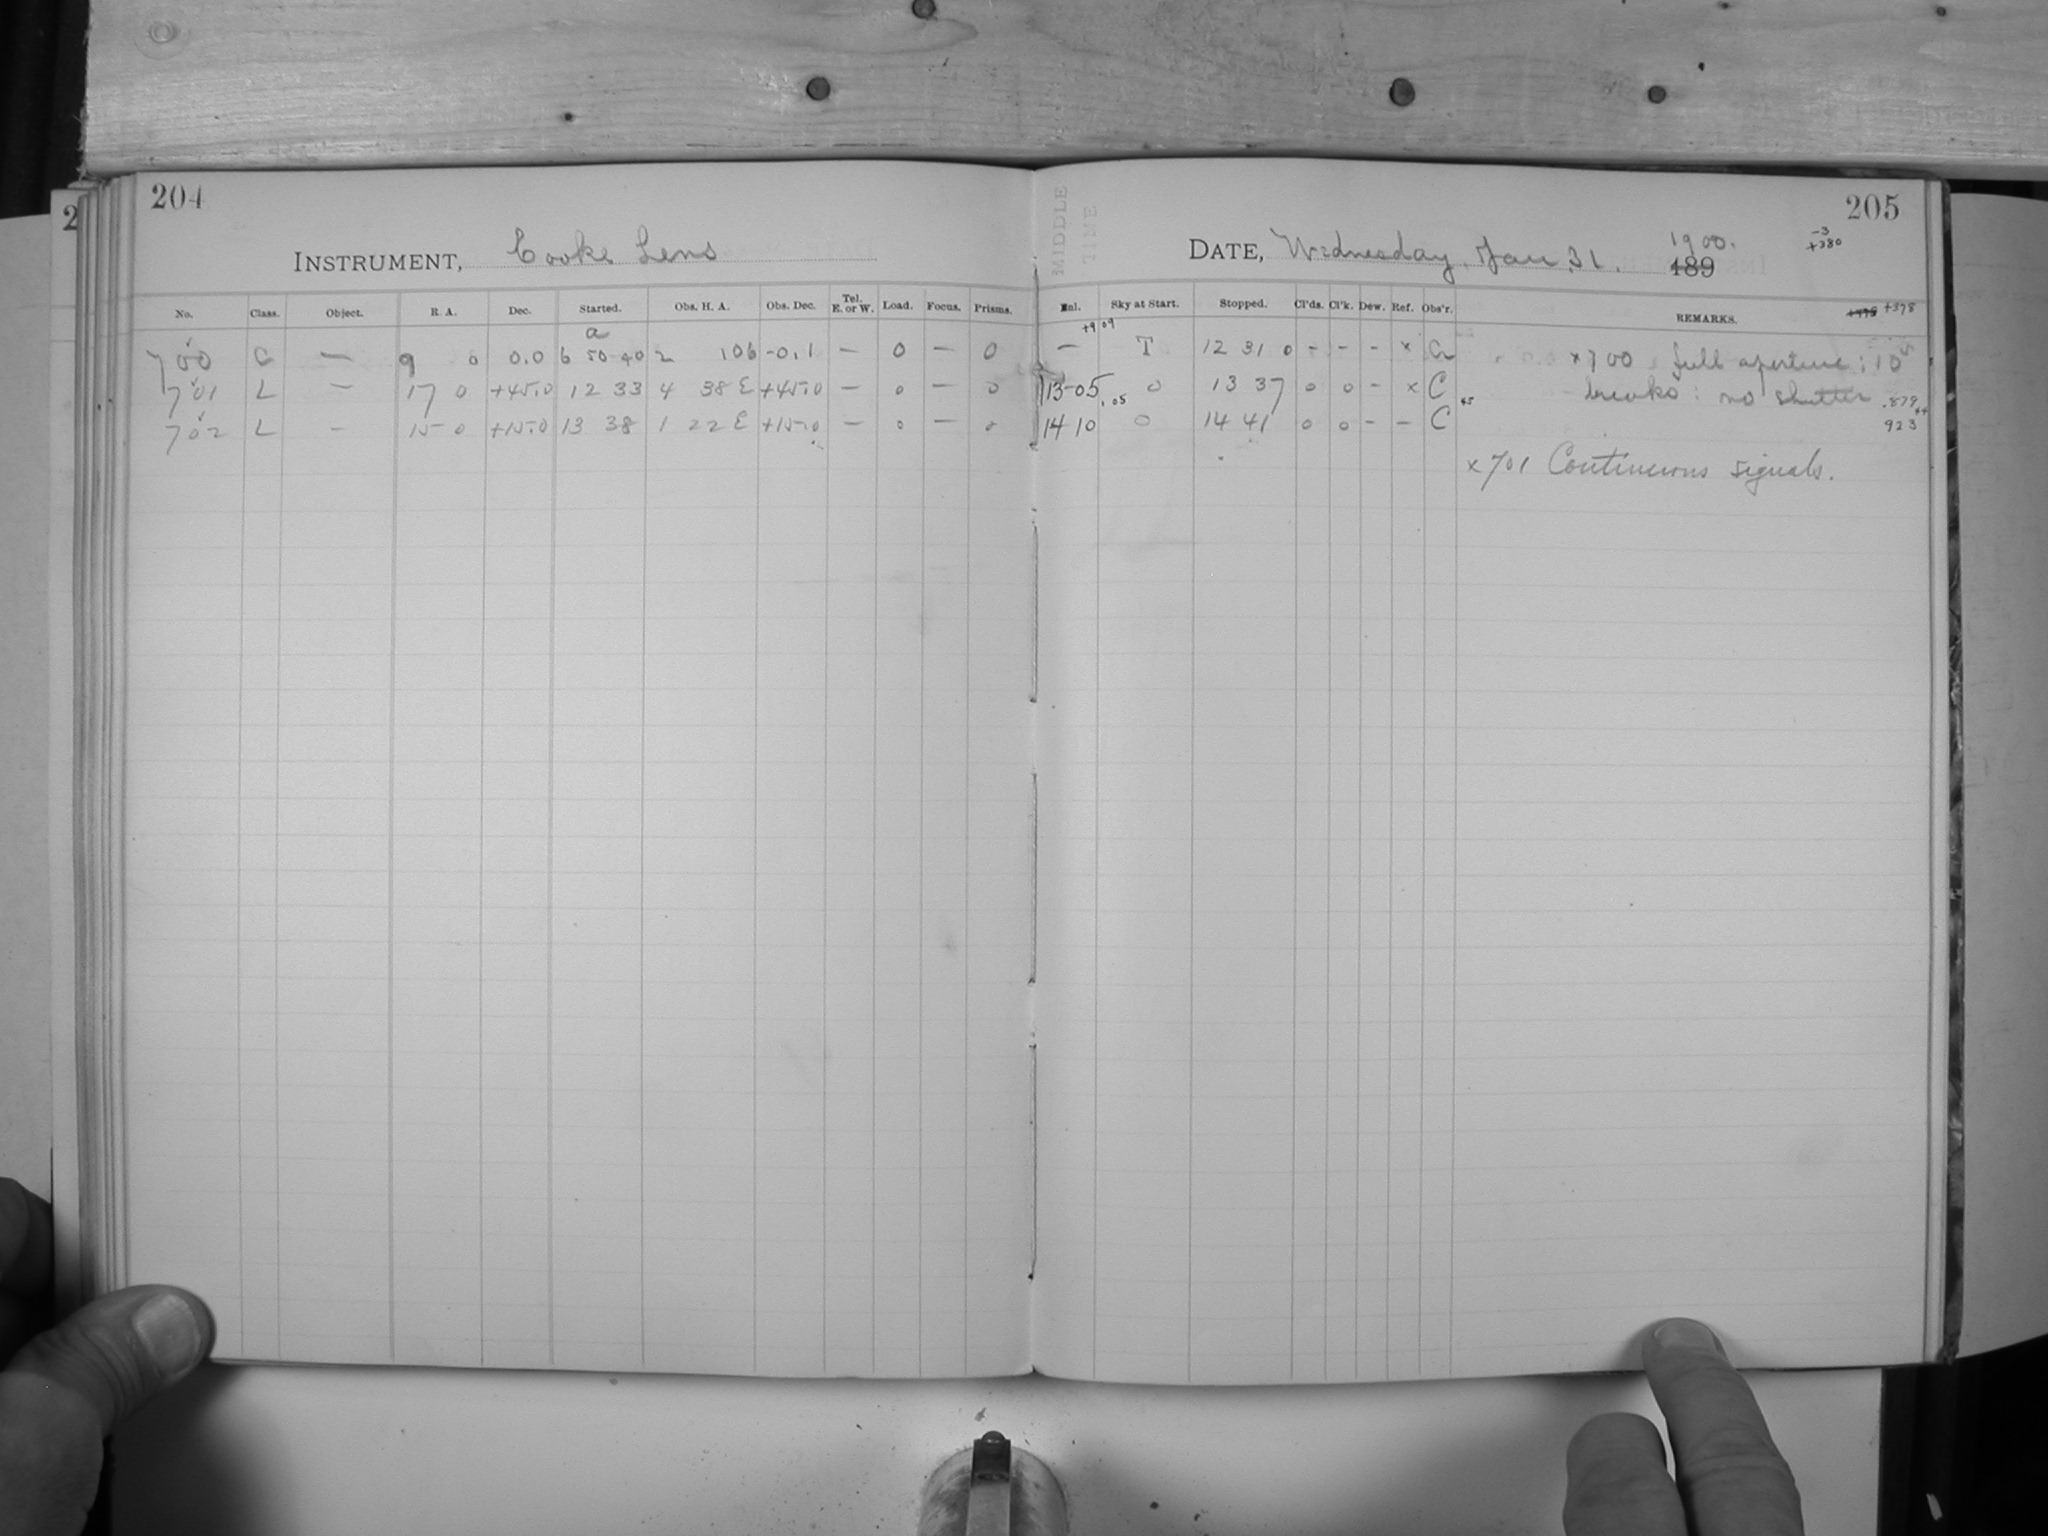 204
INSTRUMENT, Cooke Lens
No. Class. Object. R. A. Dec. Started. Obs. H. A. Obs. Dec. Tel. E. or W. Load. Focus. Prisms.
a
700 C — 9 0 0.0 6 50 40 2 106 -0.1 — 0 — 0
701 L — 17 0 +45.0 12 33 4 38 E +45.0 — 0 — 0
702 L — 15 0 +15.0 13 38 1 22 E +15.0 — 0 — 0
MIDDLE TIME
205
DATE, Wednesday, Jan 31. 1900. 189
-3
+380
Sky at Start. Stopped. Cl'ds. Cl'k. Dew. Ref. Obs'r. REMARKS. +378
+9 09
— T 12 31 0 - - - x x700 full aperture; 10s
13 05 .05 0 13 37 0 0 - x C breaks: no shutter .879
14 10 0 14 41 0 0 - - C 923
x701 Continuous signals.